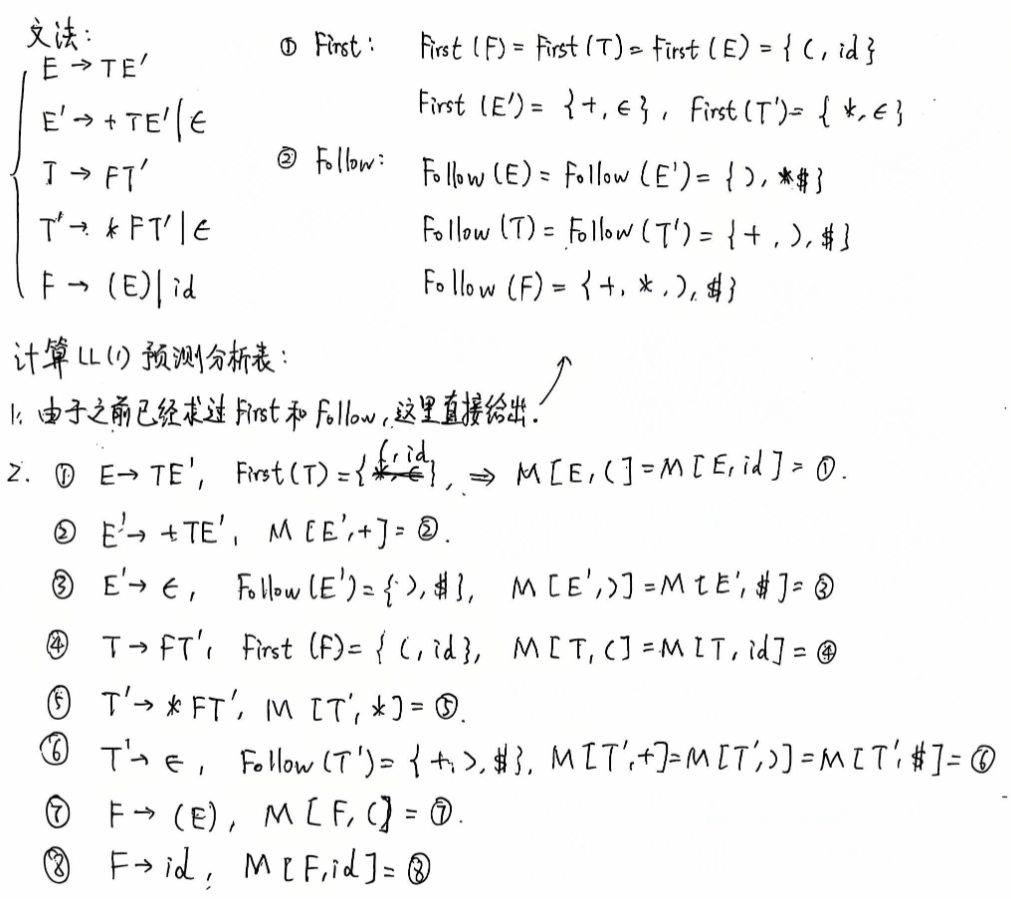 文法:
E → TE'
E' → + TE' | ϵ
T → FT'
T' → * FT' | ϵ
F → (E) | id
① First: First (F) = First (T) = First (E) = { (, id }
First (E') = { +, ϵ }, First (T') = { *, ϵ }
② Follow: Follow (E) = Follow (E') = { ), $ }
Follow (T) = Follow (T') = { +, ), $ }
Follow (F) = { +, *, ), $ }
计算 LL(1) 预测分析表:
1. 由于之前已经求过 First 和 Follow, 这里直接给出.
2. ① E → TE', First (T) = { (, id }, ⇒ M [E, (] = M [E, id] = ①.
② E' → + TE', M [E', +] = ②.
③ E' → ϵ, Follow (E') = { ), $ }, M [E', )] = M [E', $] = ③
④ T → FT', First (F) = { (, id }, M [T, (] = M [T, id] = ④
⑤ T' → * FT', M [T', *] = ⑤.
⑥ T' → ϵ, Follow (T') = { +, ), $ }, M [T', +] = M [T', )] = M [T', $] = ⑥
⑦ F → (E), M [F, (] = ⑦.
⑧ F → id, M [F, id] = ⑧